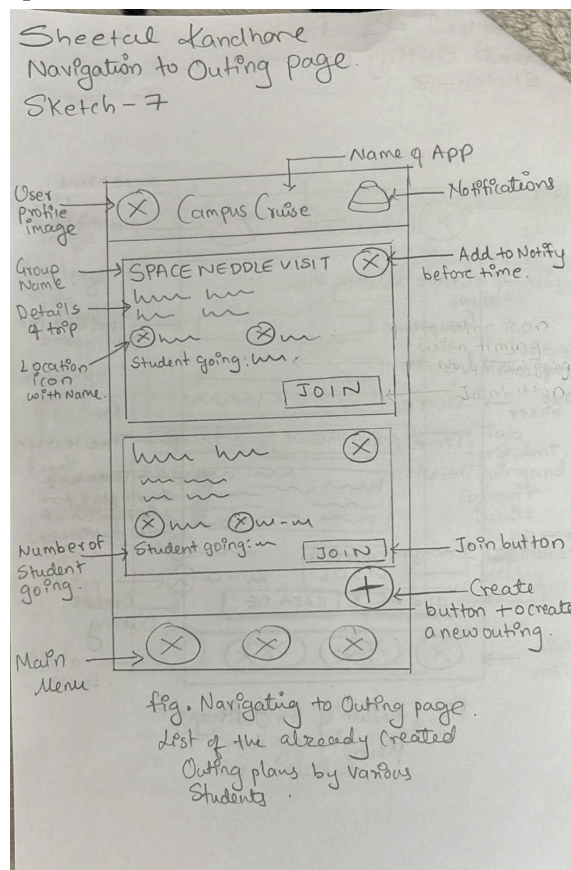 Sheetal Kandhare
Navigation to Outing page.
Sketch - 7
Name of App
User
Profile
image
Campus Cruise
Notifications
Group
Name
SPACE NEDDLE VISIT
Add to Notify
before time.
Details
of trip
Location
icon
with Name.
Student going:
JOIN
Number of
Student
going.
Student going:
JOIN
Join button
Create
button to create
a new outing.
Main
Menu.
fig. Navigating to Outing page.
List of the already Created
Outing plans by Various
Students.